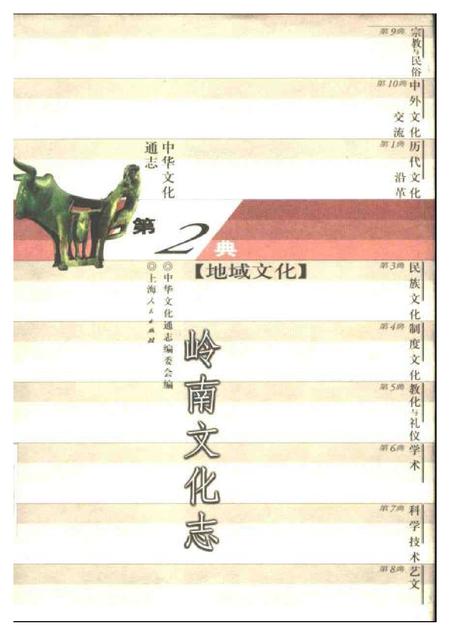 第9典
宗教与民俗
第10典
中外文化
交流
第1典
历代文化
沿革
中华文化
通志
第2典
【地域文化】
第3典
民族文化
第4典
制度文化
第5典
教化与礼仪
第6典
学术
第7典
科学技术
第8典
艺文
◎中华文化通志编委会编
◎上海人民出版社
岭南文化志